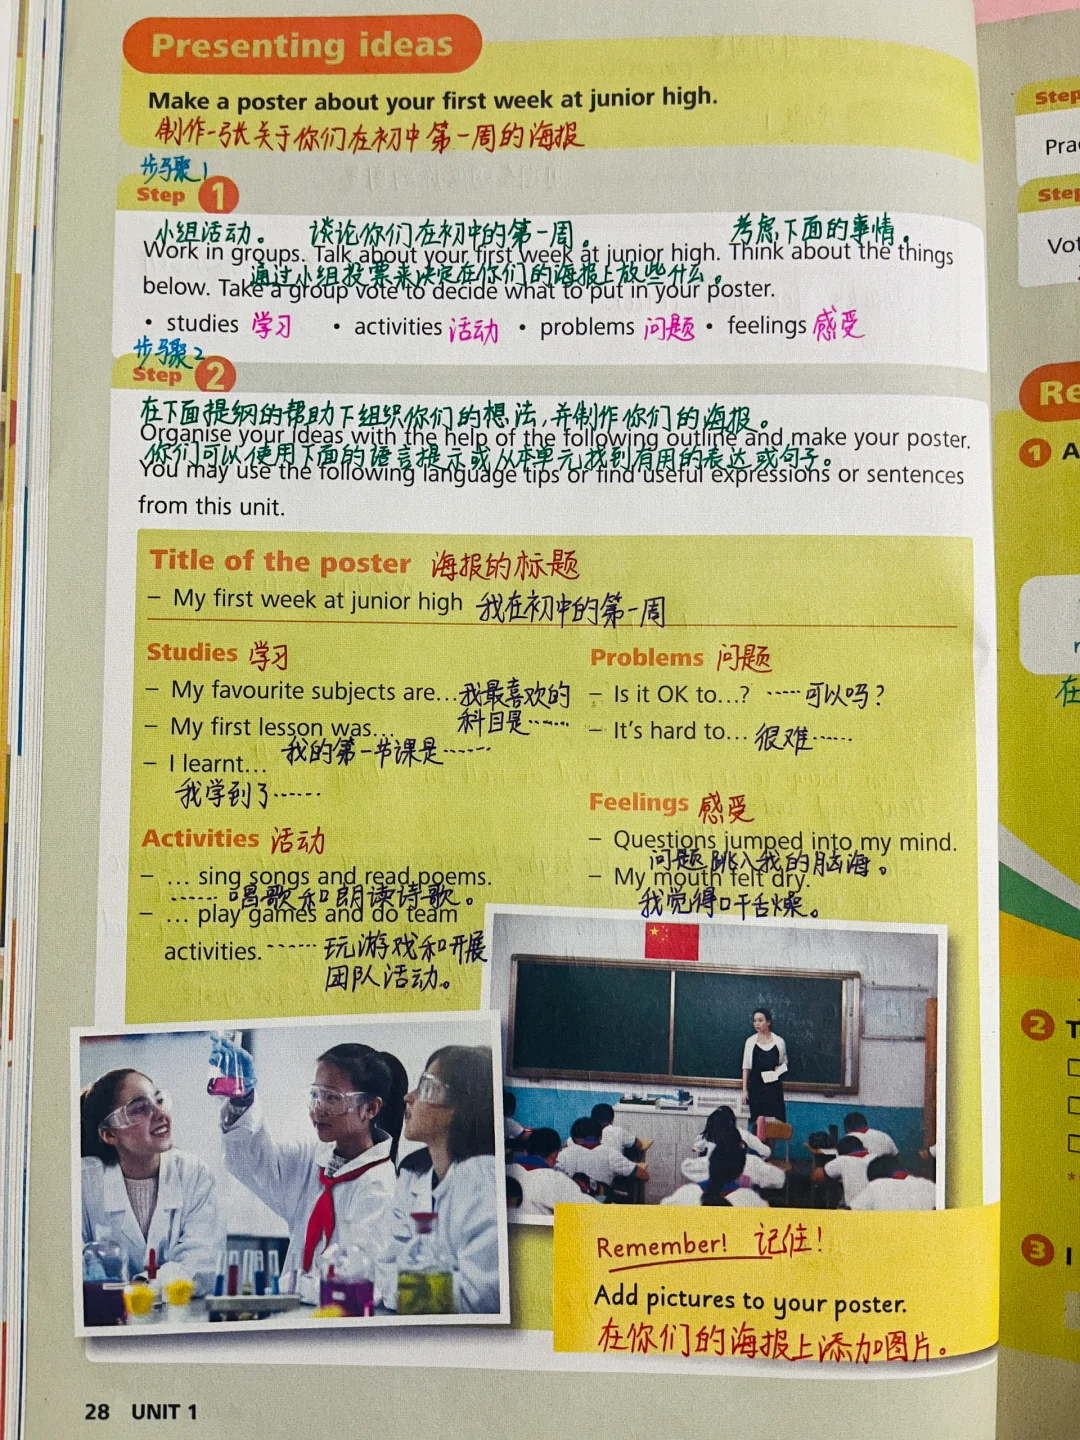 Presenting ideas
Make a poster about your first week at junior high.
制作一张关于你们在初中第一周的海报
步骤1
Step 1
小组活动。 谈论你们在初中的第一周。 考虑下面的事情。
Work in groups. Talk about your first week at junior high. Think about the things
通过小组投票来决定在你们的海报上放些什么。
below. Take a group vote to decide what to put in your poster.
• studies 学习 • activities 活动 • problems 问题 • feelings 感受
步骤2
Step 2
在下面提纲的帮助下组织你们的想法,并制作你们的海报。
Organise your ideas with the help of the following outline and make your poster.
你们可以使用下面的语言提示或从本单元找到有用的表达或句子。
You may use the following language tips or find useful expressions or sentences
from this unit.
Title of the poster 海报的标题
– My first week at junior high 我在初中的第一周
Studies 学习
– My favourite subjects are… 我最喜欢的
科目是……
– My first lesson was…
我的第一节课是……
– I learnt…
我学到了……
Activities 活动
– … sing songs and read poems.
……唱歌和朗读诗歌。
– … play games and do team
activities. ……玩游戏和开展
团队活动。
Problems 问题
– Is it OK to…? ……可以吗?
– It's hard to… 很难……
Feelings 感受
– Questions jumped into my mind.
问题跳入我的脑海。
– My mouth felt dry.
我觉得口干舌燥。
Remember! 记住!
Add pictures to your poster.
在你们的海报上添加图片。
28 UNIT 1
Step
Pra
Step
Vot
Re
1 A
在
2 T
3 I